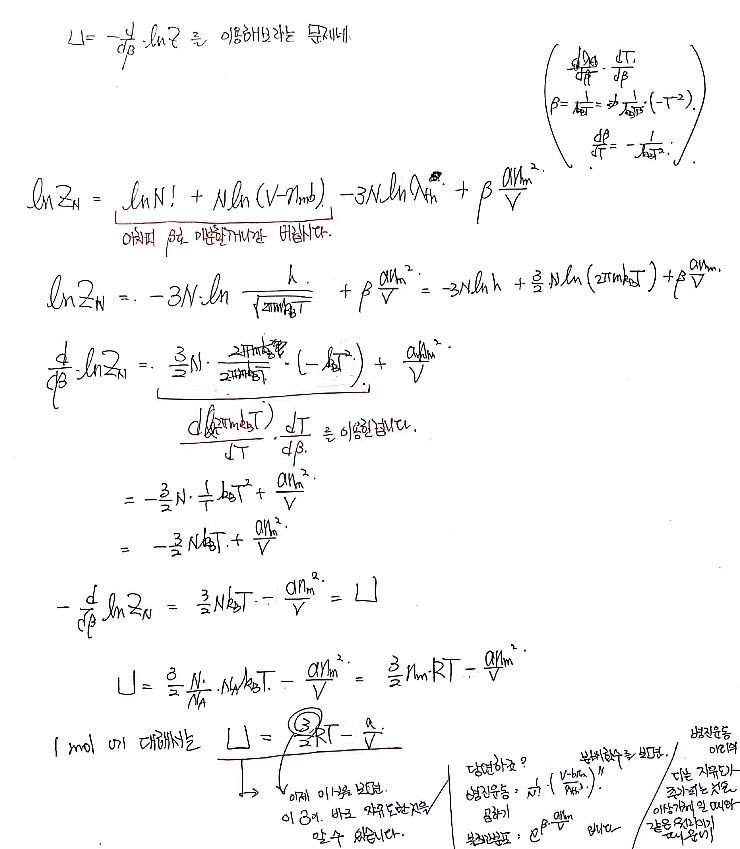 U = -d/dβ·lnZ 를 이용해보라는 문제네.
β = 1/k_BT
dβ/dT = -1/k_BT².
lnZ_N = lnN! + Nln(V-n_mb) -3Nlnλ_th + β an_m²/V
어차피 β로 미분할거니깐 버립시다.
lnZ_N = -3N·ln h/√(2πmk_BT) + β an_m²/V = -3Nlnh + 3/2 Nln(2πmk_BT) + β an_m/V
d/dβ·lnZ_N = 3/2 N· 2πmk_B/2πmk_BT ·(-k_BT²) + an_m²/V
d(ln2πmk_BT)/dT · dT/dβ 를 이용한겁니다.
= -3/2 N· 1/T k_BT² + an_m²/V
= -3/2 Nk_BT + an_m²/V
-d/dβ lnZ_N = 3/2 Nk_BT - an_m²/V = U
U = 3/2 N/N_A ·N_Ak_BT - an_m²/V = 3/2 n_m·RT - an_m²/V
1 mol 에 대해서는 U = 3/2 RT - a/V
이제 이 식을 보면.
이 3이 바로 자유도란것을
알 수 있습니다.
당연하죠? 분배함수를 보면.
병진운동 : 1/N! ·(V-bn_m/λ_th³)^N
곱하기
볼츠만분포 : e^(β·an_m²/V) 입니다
병진운동
이외의
다른 자유도가
추가되는 것은
이상기체일 때와
같은 원리이기
때문에